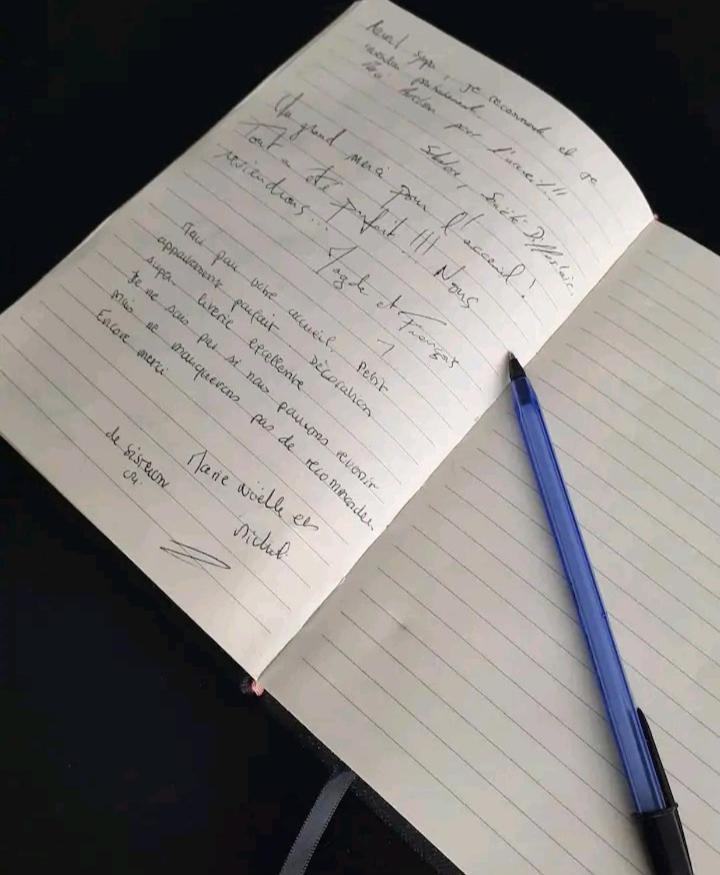 Accueil sympa, je recommande et je
pour l'accueil !!!
Un grand merci pour l'accueil !
Tout a été parfait !!! Nous
reviendrons...
Magde et François
Merci pour votre accueil, petit
appartement parfait. Décoration
super. literie excellente
Je ne sais pas si nous pourrons revenir
mais ne manquerons pas de recommander
Encore merci
Marie Noëlle et
Michel
de Sisteron
04.